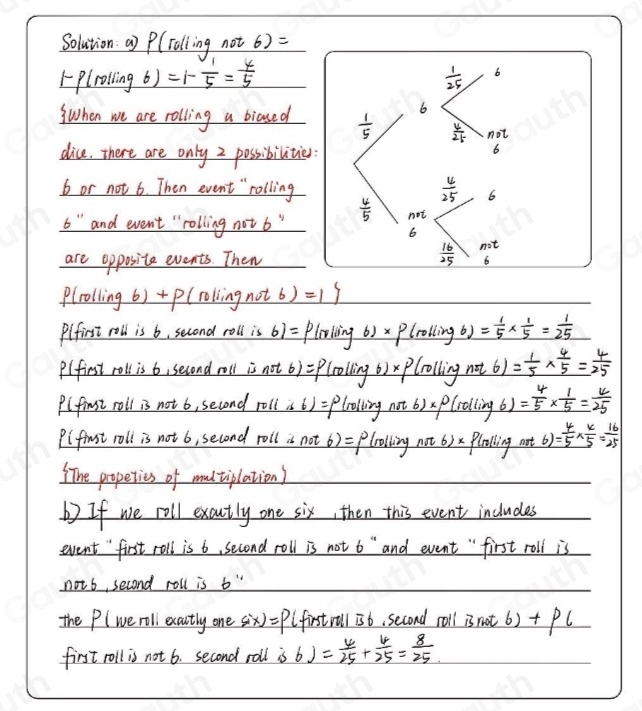 Solution: a) P(rolling not 6) =
1-P(rolling 6) = 1- 1/5 = 4/5
{When we are rolling a biased
dice. there are only 2 possibilities:
6 or not 6. Then event "rolling
6" and event "rolling not 6"
are opposite events. Then
P(rolling 6) + P(rolling not 6) = 1}
1/5 6 1/25 6
4/25 not 6
4/5 not 6 4/25 6
16/25 not 6
P(first roll is 6, second roll is 6) = P(rolling 6) × P(rolling 6) = 1/5 × 1/5 = 1/25
P(first roll is 6, second roll is not 6) = P(rolling 6) × P(rolling not 6) = 1/5 × 4/5 = 4/25
P(first roll is not 6, second roll is 6) = P(rolling not 6) × P(rolling 6) = 4/5 × 1/5 = 4/25
P(first roll is not 6, second roll is not 6) = P(rolling not 6) × P(rolling not 6) = 4/5 × 4/5 = 16/25
{The propeties of multiplation}
b) If we roll exautly one six, then this event includes
event "first roll is 6, second roll is not 6" and event "first roll is
not 6, second roll is 6"
the P(we roll exactly one six) = P(first roll is 6, second roll is not 6) + P(
first roll is not 6. second roll is 6) = 4/25 + 4/25 = 8/25.